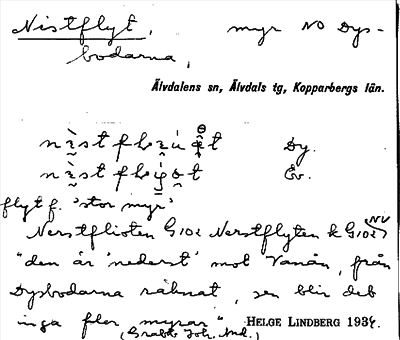 Nistflyt, myr NO Dys-
bodarna,
Älvdalens sn, Älvdals tg, Kopparbergs län.
Dy.
Ev.
flyt f. 'stor myr'
Nerstflioten G102 Nerstflyten k G102 NV
"den är 'nederst' mot Vanån, från
Dysbodarna räknat, sen blir det
inga fler myrar" HELGE LINDBERG 1934.